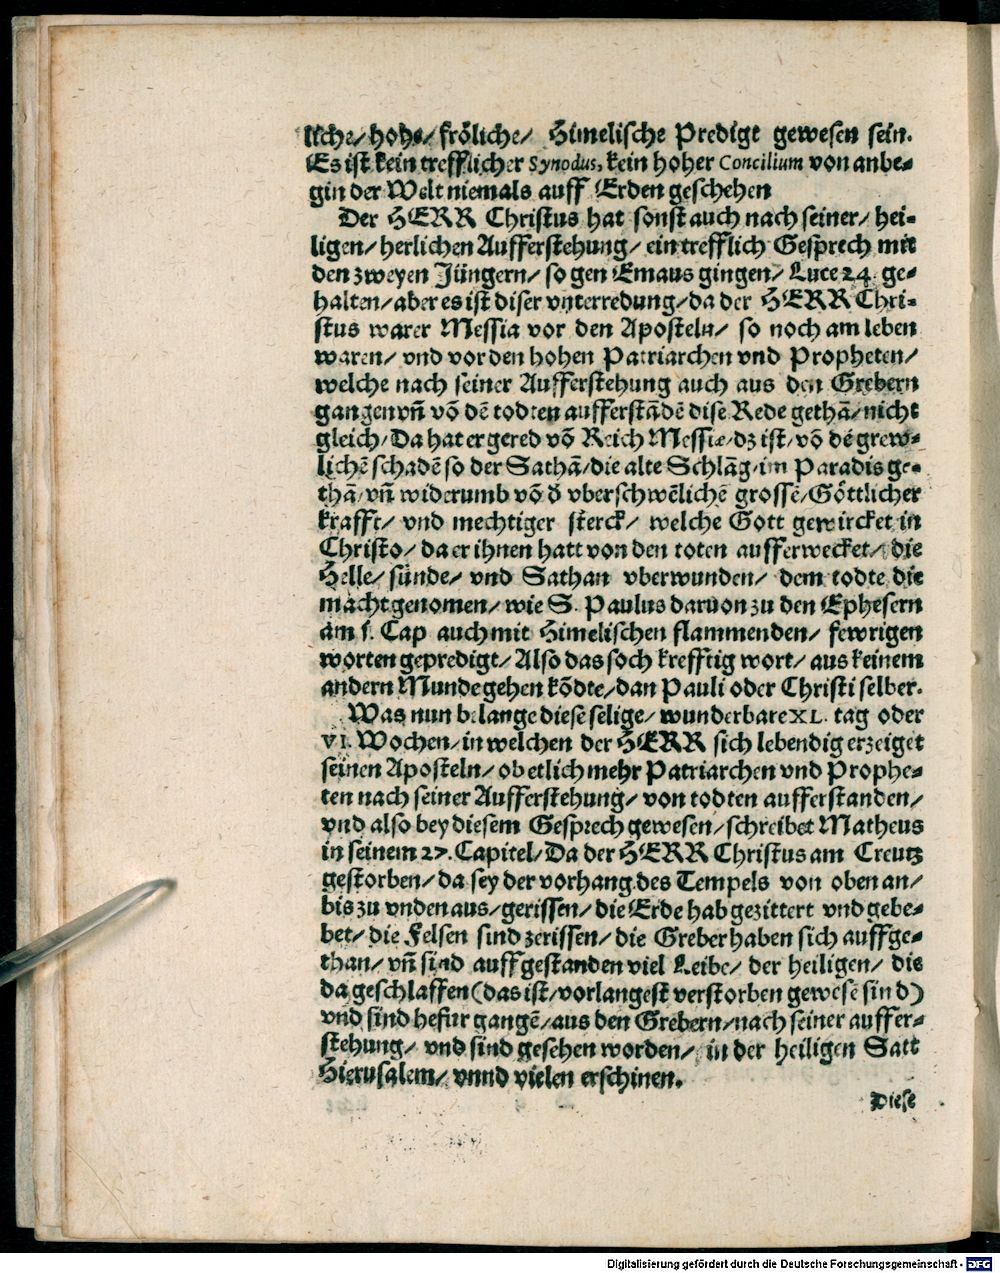 liche/ hohe/ fröliche/ Himelische Predigt gewesen sein.
Es ist kein trefflicher Synodus, kein hoher Concilium von anbe-
gin der Welt niemals auff Erden geschehen
Der HERR Christus hat sonst auch nach seiner/ hei-
ligen/ herlichen Aufferstehung/ ein trefflich Gesprech mit
den zweyen Jüngern/ so gen Emaus gingen/ Luce 24. ge-
halten/ aber es ist diser vnterredung/ da der HERR Chri-
stus warer Messia vor den Aposteln/ so noch am leben
waren/ vnd vor den hohen Patriarchen vnd Propheten/
welche nach seiner Aufferstehung auch aus den Grebern
gangen vñ võ dẽ todten aufferstãdẽ dise Rede gethã/ nicht
gleich/ Da hat er gered võ Reich Messiæ/ dz ist/ võ dẽ grew-
lichẽ schadẽ so der Sathã/ die alte Schlãg/ im Paradis ge-
thã/ vñ widerumb võ d̕ vberschwẽlichẽ grossẽ/ Göttlicher
krafft/ vnd mechtiger sterck/ welche Gott gewircket in
Christo/ da er ihnen hatt von den toten aufferwecket/ die
Helle/ sünde/ vnd Sathan vberwunden/ dem todte die
macht genomen/ wie S. Paulus daruon zu den Ephesern
am 1. Cap auch mit Himelischen flammenden/ fewrigen
worten gepredigt/ Also das soch krefftig wort/ aus keinem
andern Munde gehen ködte/ dan Pauli oder Christi selber.
Was nun belange diese selige/ wunderbare XL. tag oder
VI. Wochen/ in welchen der HERR sich lebendig erzeiget
seinen Aposteln/ ob etlich mehr Patriarchen vnd Prophe-
ten nach seiner Aufferstehung/ von todten aufferstanden/
vnd also bey diesem Gesprech gewesen/ schreibet Matheus
in seinem 27. Capitel/ Da der HERR Christus am Creutz
gestorben/ da sey der vorhang des Tempels von oben an/
bis zu vnden aus/ gerissen/ die Erde hab gezittert vnd gebe-
bet/ die Felsen sind zerissen/ die Greber haben sich auffge-
than/ vñ sind auffgestanden viel Leibe/ der heiligen/ die
da geschlaffen (das ist/ vorlangest verstorben gewesẽ sind)
vnd sind hefur gangẽ/ aus den Grebern/ nach seiner auffer-
stehung/ vnd sind gesehen worden/ in der heiligen Satt
Hierusalem/ vnnd vielen erschinen.
Diese
Digitalisierung gefördert durch die Deutsche Forschungsgemeinschaft - DFG